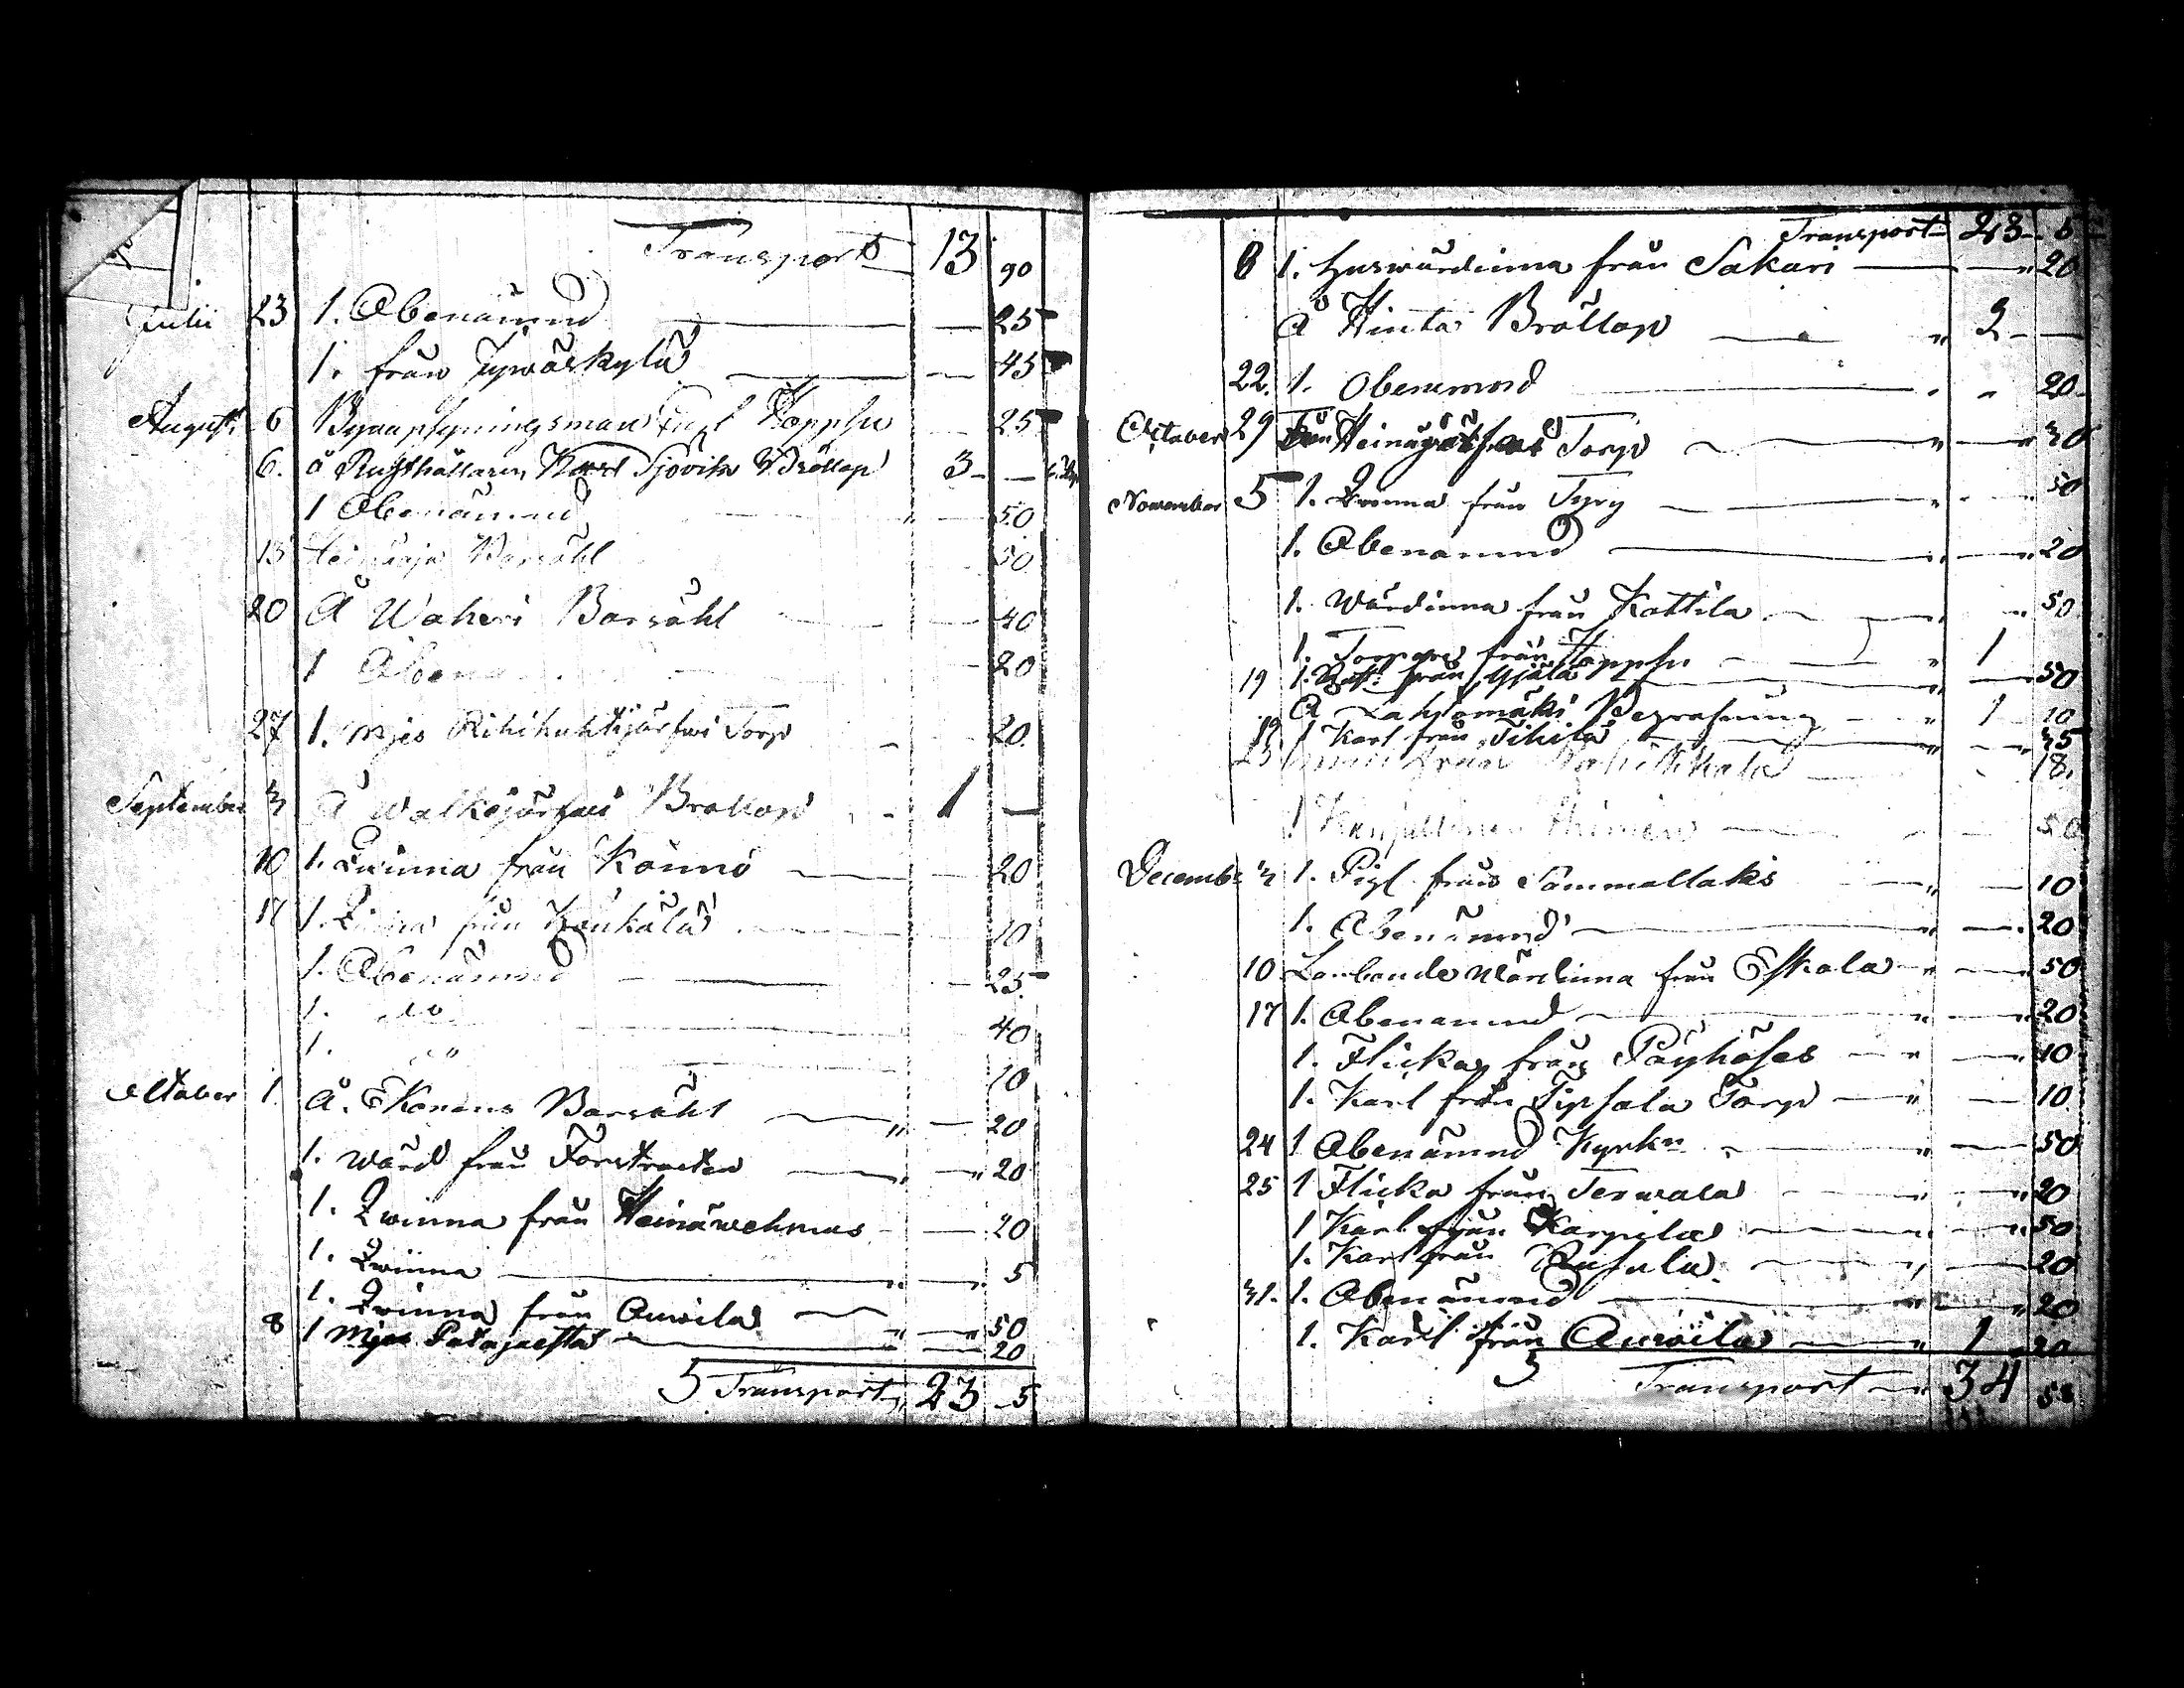 Transport 13 90
Julii 23 1. Obenämnd 25
1. från Jywäskylä 45
August 6 Hoppsu 25
6. å Rusthållaren Karl Sjövik Bröllop 3 —
1 Obenämnd 50
13 Heinäoja Barsöhl 50
20 Å Waheri Barsöhl 40
1 Obenä 20
27 1. Mjes Riihihuhtijärfwi Torp 20
September 3 Å Walkejärfwi Bröllop 1 —
10 1. Qwinna från Könnö 20
17 1. Qwinna från Kaukola 10
1. Obenämnd 25
1. do 40
1. " 10
October 1 Å Ekonens Barsöhl 20
1. Wärd från Forstrneten 20
1. Qwinna från Heinäwehmas 20
1. Qwinna 5
1. Qwinna från Anwila 50
8 1 Mjes Patajaesta 20
Transport 23 5
Transport 23 5
8 1. Huswärdinna från Sakari 20
Å Hinta Bröllop 2 —
22. 1. Obenemnd 20
October 29 Från Torp 30
November 5 1. Qwinna från Tyry 50
1. Obenämnd 20
1. Wärdinna från Kottila 50
1. Torpare från Hoppsu 1
19 1. från 50
Å Lahdomäki Begrafning 1 10
19 1 Karl från Tihilä 35
25 från 18
1 50
Decembr 3 1. Pigl från Sammallaks 10
1. Obenämnd 20
10 Lanbonde Wärdinna från Eskola 50
17 1. Obenämnd 20
1. Flicka från Pöyhölas 10
1. Karl från Torp 10
24 1 Obenämnd Kyrkn 50
25 1 Flicka från Terwala 20
1 Karl från Karpila 50
1. Karl från 20
31. 1. Obenämnd 20
1. Karl från Anwila 1 20
Transport 34 58